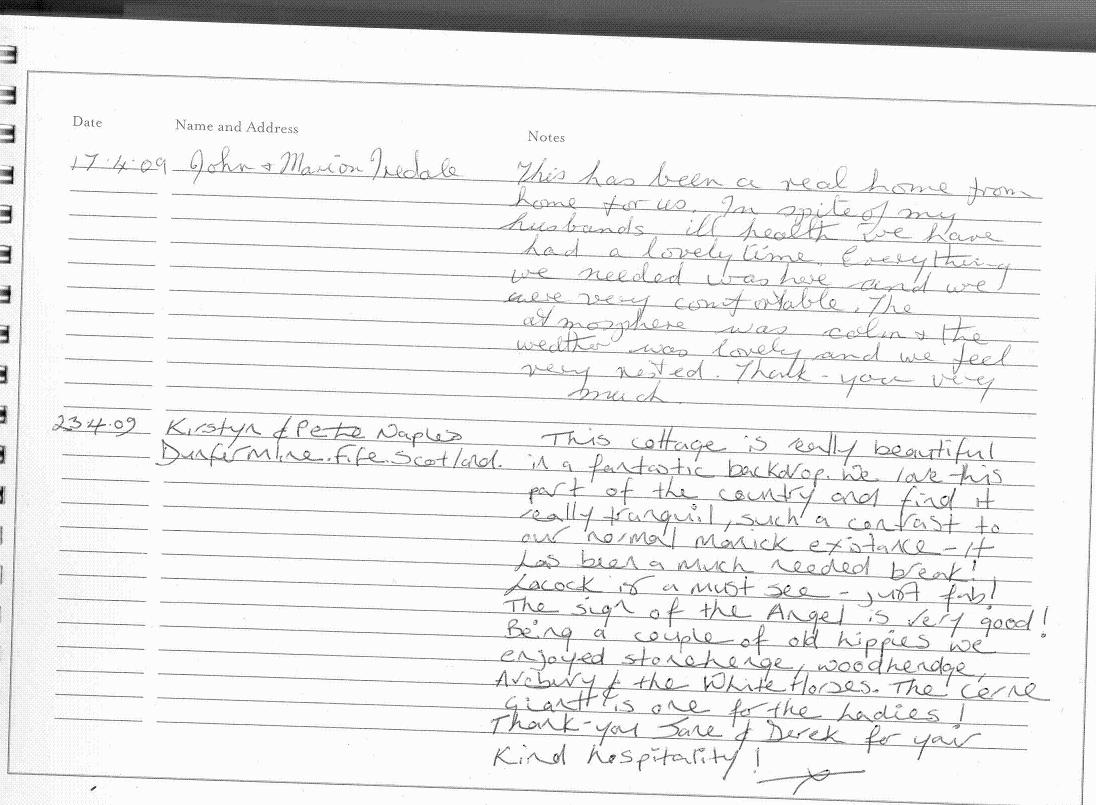 Date Name and Address Notes
17.4.09 John & Marion Iredale This has been a real home from
home for us. In spite of my
husbands ill health we have
had a lovely time. Everything
we needed was here and we
were very comfortable. The
atmosphere was calm & the
weather was lovely and we feel
very rested. Thank-you very
much.
23.4.09 Kirstyn & Pete Naples This cottage is really beautiful
Dunfirmline. Fife. Scotland. in a fantastic backdrop. We love this
part of the country and find it
really tranquil, such a contrast to
our normal manick existance - It
has been a much needed break!
Lacock is a must see - just fab!
The sign of the Angel is very good!
Being a couple of old hippies we
enjoyed stonehenge, woodhendge,
Avebury & the White Horses. The Cerne
Giant is one for the Ladies!
Thank-you Jane & Derek for your
Kind hospitality!